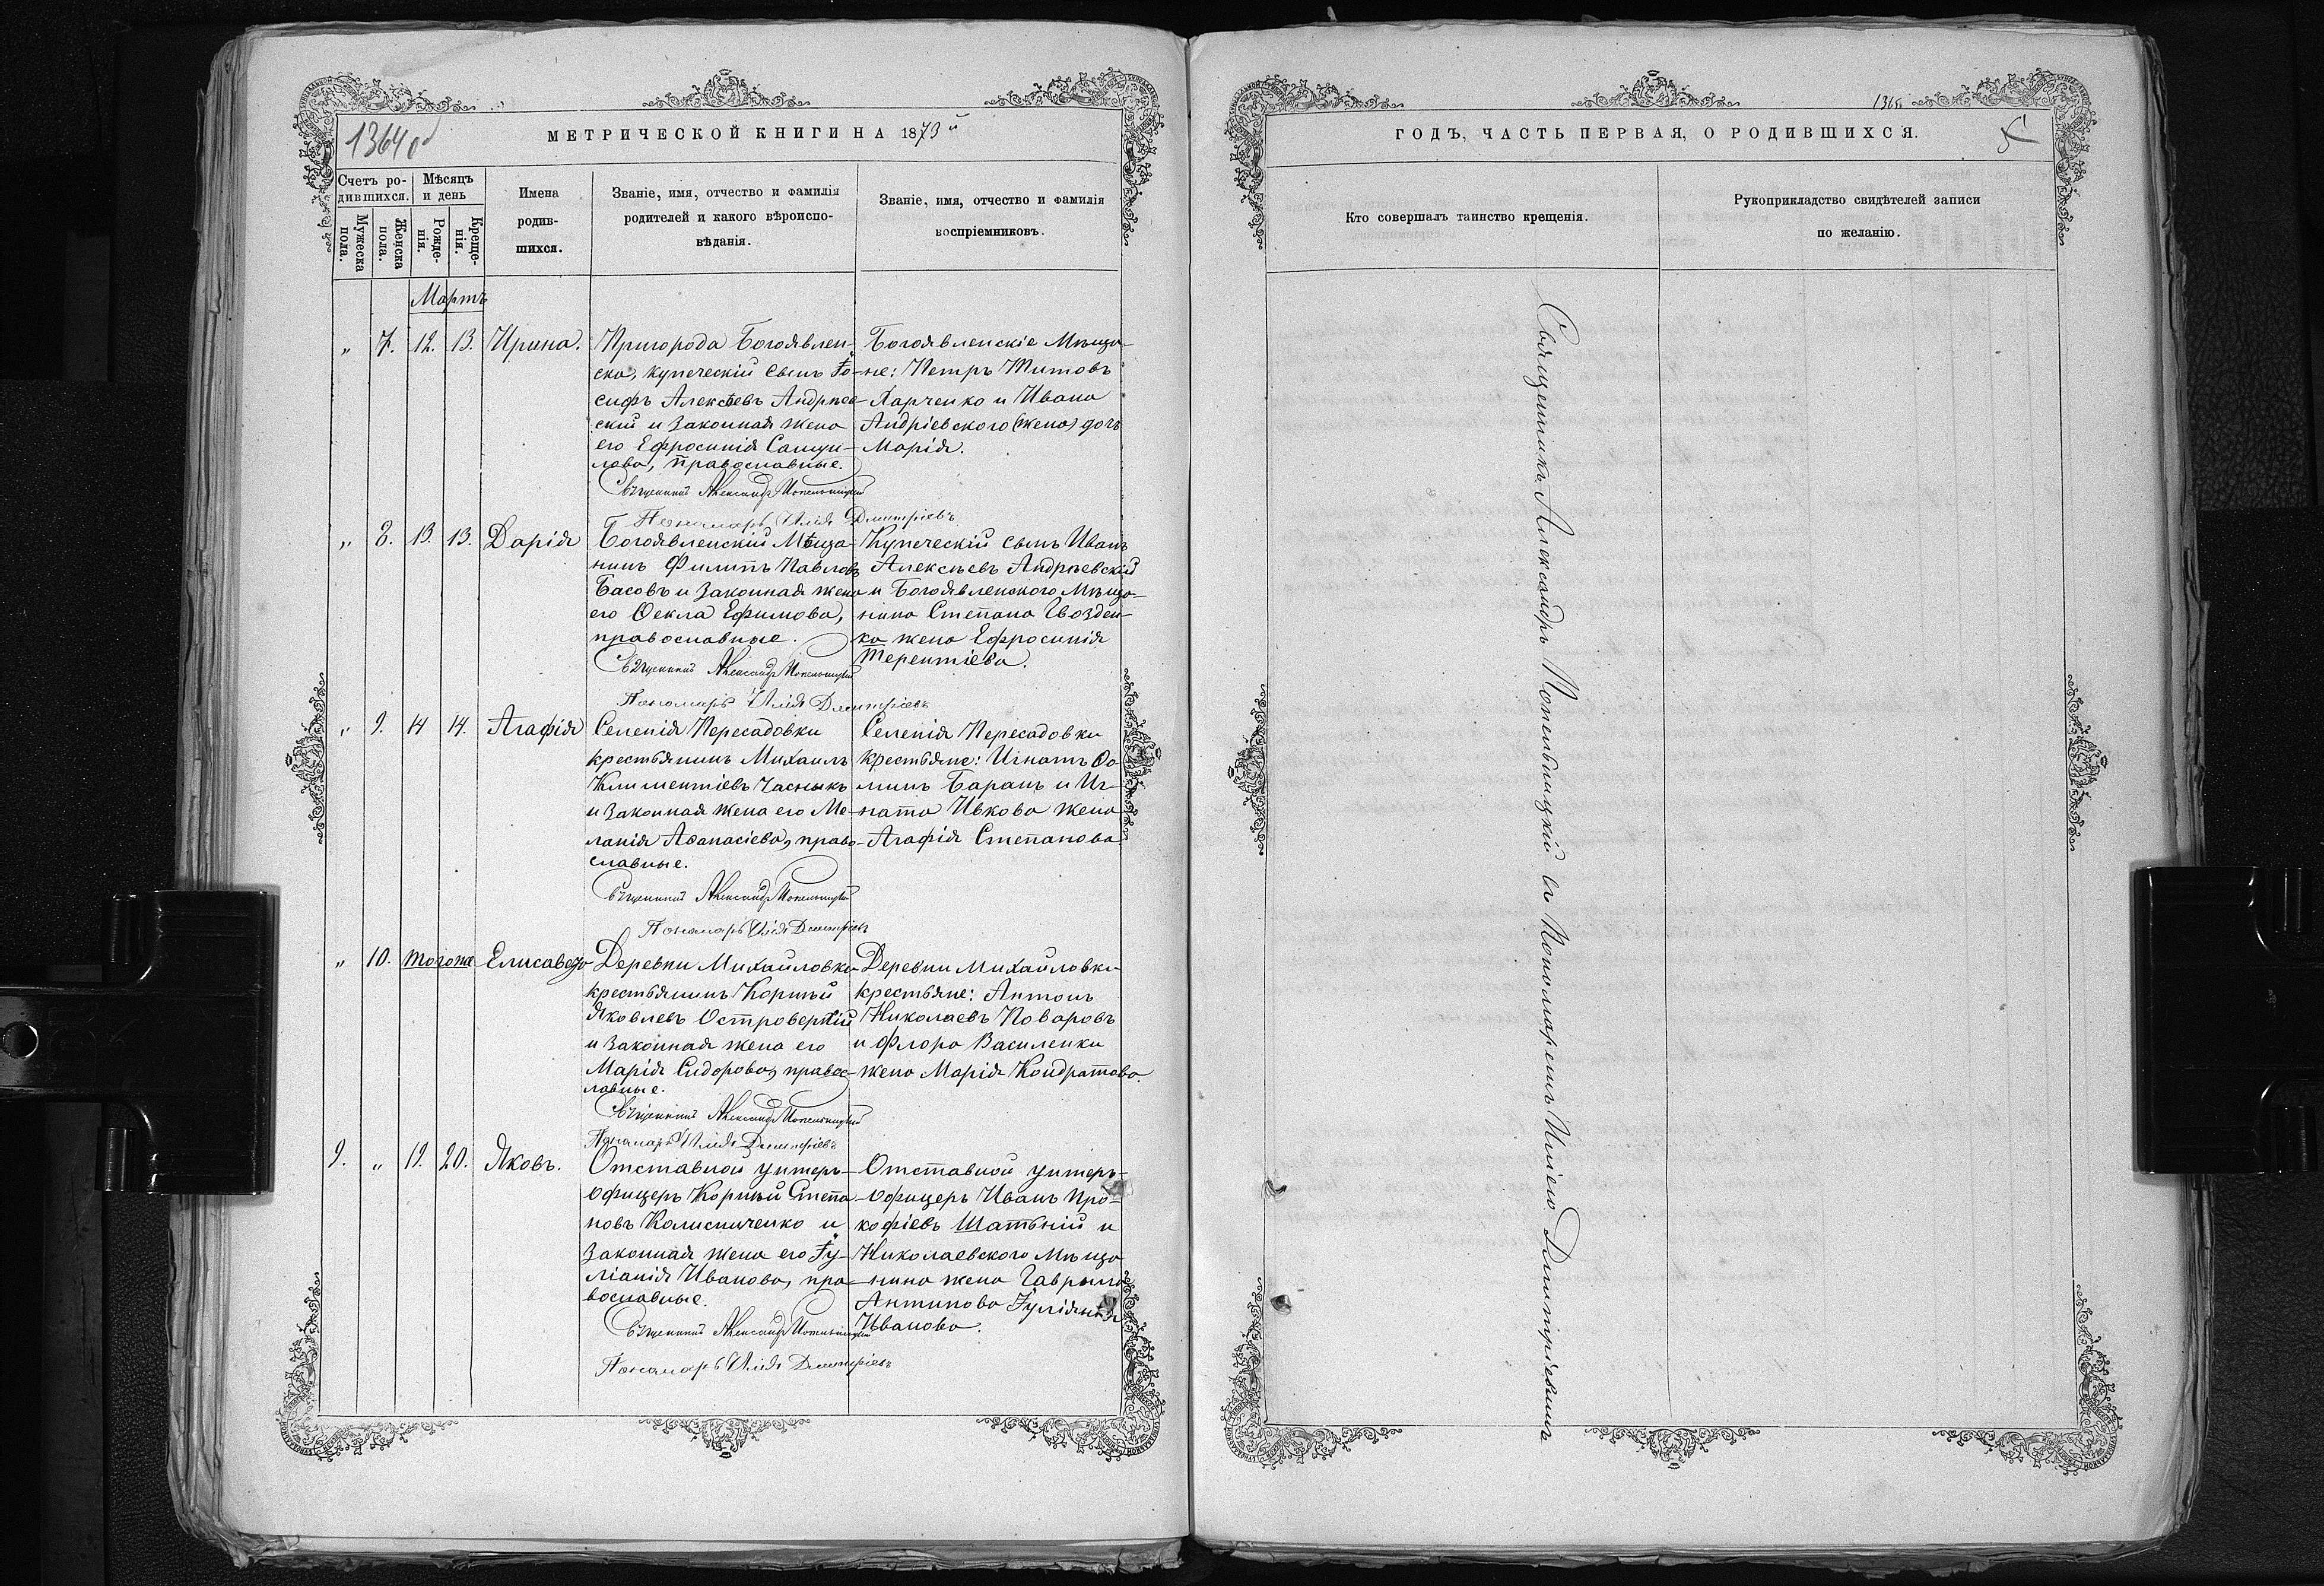 1364 об
МЕТРИЧЕСКОЙ КНИГИ НА 1873й
Счетъ ро-
дившихся.
Мѣсяцъ
и день
Мужеска
пола.
Женска
пола.
Рожде-
нія.
Креще-
нія.
Имена
родив-
шихся.
Званіе, имя, отчество и фамилія
родителей и какого вѣроиспо-
вѣданія.
Званіе, имя, отчество и фамилія
воспріемниковъ.
Мартъ
„ 7. 12. 13. Ирина.
Пригорода Богоявлен-
ска, купеческій сынъ Іо-
сифъ Алексѣевъ Андріев-
скій и законная жена
его Ефросинія Самуи-
лова, православные.
Священникъ Александръ Попельницкій
Пономарь Илія Димитріевъ
Богоявленскіе Мѣща-
не: Петръ Титовъ
Харченко и Ивана
Андріевского (жена) дочь
Марія.
„ 8. 13. 13. Дарія
Богоявленскій Мѣща-
нинъ Филипъ Павловъ
Басовъ и законная жена
его Ѳекла Ефимова,
православные.
Священникъ Александръ Попельницкій
Пономарь Илія Димитріевъ
Купеческій сынъ Иванъ
Алексѣевъ Андріевскій
и Богоявленского Мѣща-
нина Степана Гвозден-
ка жена Ефросинія
Терентіева.
„ 9. 14 14. Агафія
Селенія Пересадовки
крестьянинъ Михаилъ
Климентіевъ Часныкъ
и законная жена его Ме-
ланія Аѳанасіева, право-
славные.
Священникъ Александръ Попельницкій
Пономарь Илія Димитріевъ
Селенія Пересадовки
крестьяне: Игнатъ Ѳо-
минъ Баранъ и Иг-
ната Ивкова жена
Агафія Степанова
„ 10. тогоже Елисавета
Деревни Михайловки
крестьянинъ Корнѣй
Яковлевъ Островерхій
и законная жена его
Марія Сидорова, правос-
лавные.
Священникъ Александръ Попельницкій
Пономарь Илія Димитріевъ
Деревни Михайловки
крестьяне: Антонъ
Николаевъ Поваровъ
и Флора Василенки
жена Марія Кондратова.
9. „ 19. 20. Яковъ.
Отставной унтеръ-
офицеръ Корнѣй Степа-
новъ Калиниченко и
законная жена его Іу-
ліанія Иванова, пра-
вославные.
Священникъ Александръ Попельницкій
Пономарь Илія Димитріевъ
Отставной унтеръ-
офицеръ Иванъ Про-
кофіевъ Шатьній и
Николаевского Мѣща-
нина жена Гаврила
Антипова Іуліанія
Иванова.
1365
ГОДЪ, ЧАСТЬ ПЕРВАЯ, О РОДИВШИХСЯ.
5
Кто совершалъ таинство крещенія.
Рукоприкладство свидѣтелей записи
по желанію.
Священникъ Александръ Попельницкій съ Пономаремъ Иліею Димитріевымъ